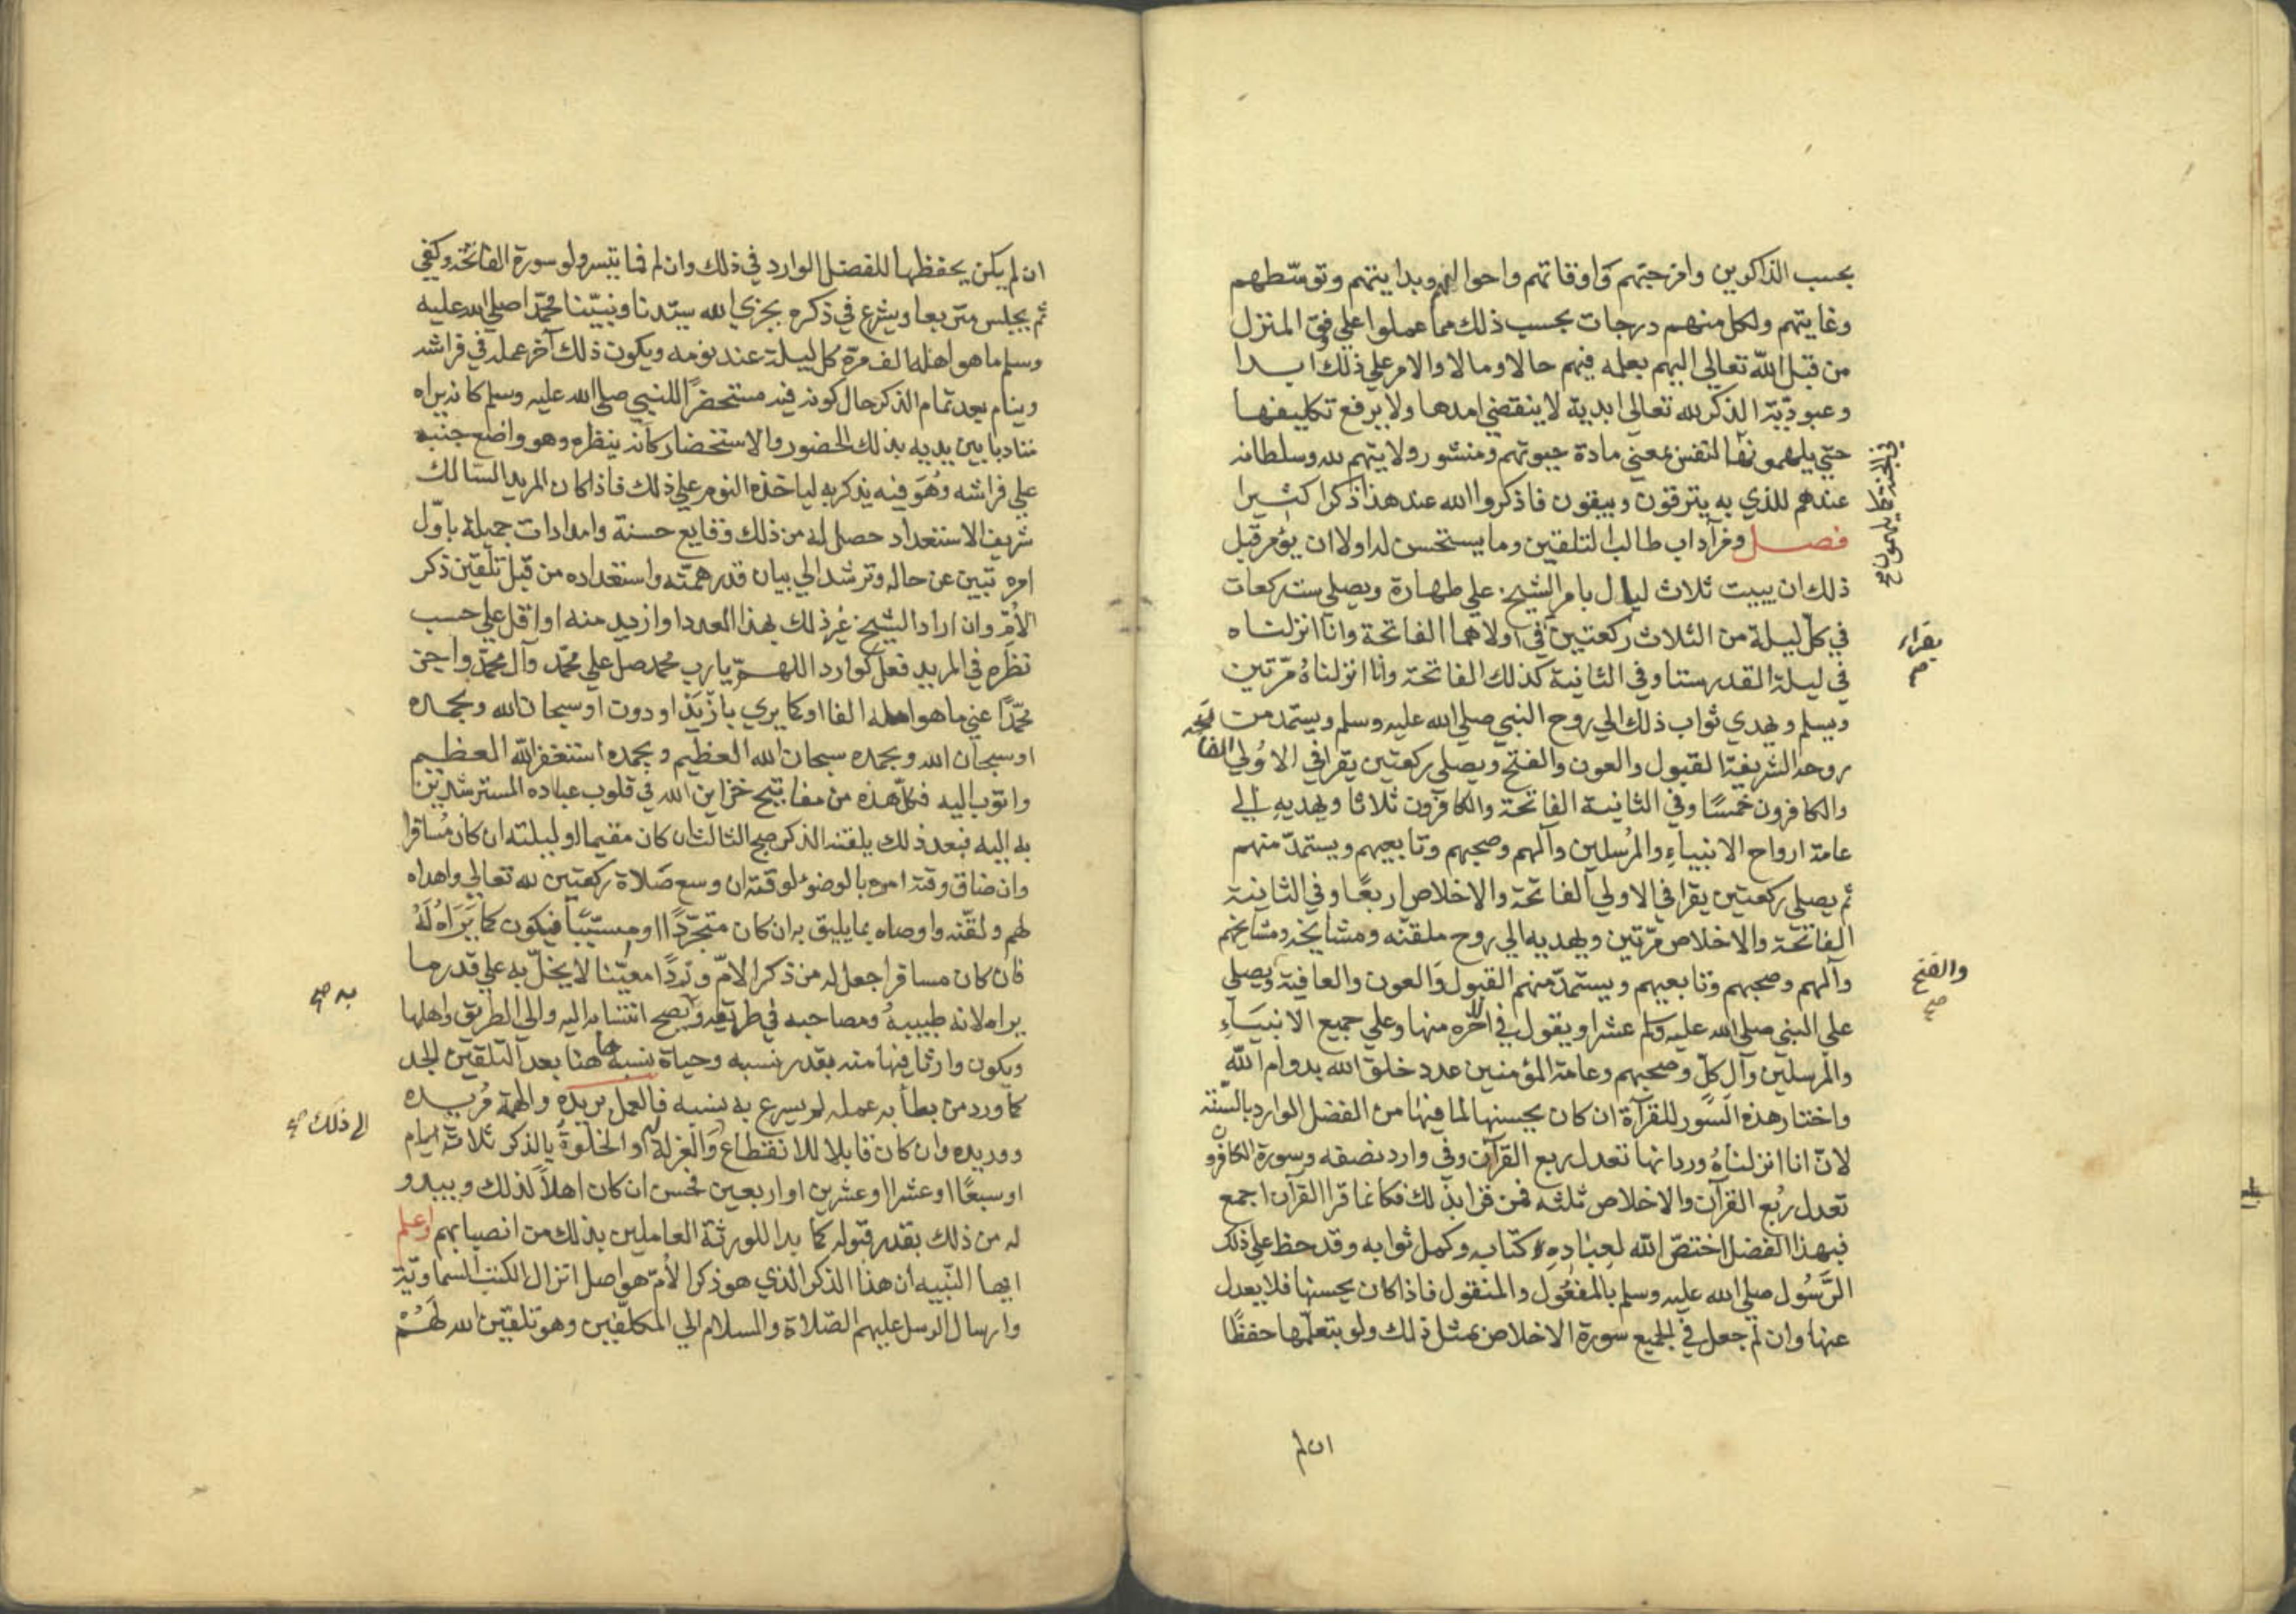 بحسب الذاكرين وامزجتهم واوقاتهم واحوالهم وبداينتهم وتوسّطهم
وغايتهم ولكل منهم درجات بحسب ذلك مما عملوا علي وفق المنزل
من قبل اللّه تعالي اليهم بعلمه فيهم حالا ومالا والامر علي ذلك ابدا
وعبوديّة الذكر لله تعالي ابدية لا ينقضي امدها ولا يرفع تكليفها
حتي يلهمونها لنفس معني مادة حيوتهم ومنشور ولايتهم لله وسلطانه
في الجنة كما يلهمون صح
عندهم للذي به يترقون ويبقون فاذكروا الله عند هذا ذكرا كثيرا
فصل ومن آداب طالب التلقين وما يستحسن له اولا ان يؤمر قبل
ذلك ان يبيت ثلاث ليال بامر الشيخ علي طهارة ويصلي ست ركعات
في كلّ ليلة من الثلاث ركعتين في اولاهما الفاتحة وانا انزلناه
يقراء
في ليلة القدر ستا وفي الثانية كذلك الفاتحة وانا انزلناهُ مرّتين
ويسلم ويهدي ثواب ذلك الي روح النبي صلي الله عليه وسلم ويستمد من
روحه الشريفة القبول والعون والفتح ويصلي ركعتين يقرا في الاوُلي الفاتحة
والكافرون خمسًا وفي الثانية الفاتحة والكافرون ثلاثا ويهديه الي
عامة ارواح الانبياءِ والمرُسلين وآلهم وصحبهم وتابعيهم ويستمدّ منهم
ثم يصلي ركعتين يقرا في الاولي الفاتحة والاخلاص اربعًا وفي الثانية
الفاتحة والاخلاص مرّتين ويهديه الي روح ملقنه ومشايخه ومشايخهم
وآلهم وصحبهم وتابعيهم ويستمدّ منهم القبول والعون والعافية ويصلي
والفتح صح
علي النبي صلي الله عليه وسلم عشرا ويقول في اخره منها وعلي جميع الانبيَاءِ
والمرسلين وآل كلّ وصحبهم وعامة المؤمنين عدد خلق الله بدوام اللّه
واختار هذه السّور للقرآة ان كان يحسنها لما فيها من الفضل الوارد بالسنّة
لانّ انا انزلناهُ ورد انها تعدل ربع القرآن وفي وارد نصفه وسورة الكافرون
تعدل رُبع القرآن والاخلاص ثلثه فمن قرا بذلك فكانما قرا القرآن اجمع
فبهذا الفضل اختصّ اللّه لعِبَادِهِ كتابه وكمل ثوابه وقد حظ علي ذلك
الرَّسُول صلي الله عليه وسلم بالمفعُول والمنقول فاذا كان يحسنها فلا يعدل
عنها وان لم جعل في الجميع سورة الاخلاص بمثل ذلك ولو بتعلّمها حفظًا
ان لم
ان لم يكن يحفظها للفضل الوارد في ذلك وان لم فما تيسر ولو سورة الفاتحة وكفي
ثم يجلس متربعا ويشرع في ذكره بجزي الله سيّدنا ونبيّنا محمّدا صلي الله عليه
وسلم ما هو اهله الف مرة كل ليلة عند نومه ويكون ذلك آخر عمله في فراشه
وينام بعد تمام الذكر حال كونه فيه مستحضرًا للنبي صلي الله عليه وسلم كانه يراه
متادبا بين يديه بذلك الحضور والاستحضار كأنه ينظره وهو واضع جنبه
علي فراشه وهُوَ فيه يذكر به لياخذه النوم علي ذلك فاذا كان المريد السّالك
شريف الاستعداد حصل له من ذلك وقايع حسنة وامدادات جميلة باوّل
امره تبين عن حاله وترشد الي بيان قدر همّته واستعداده من قبل تلقين ذكر
الأمّ وان اراد الشيخ غير ذلك بهذا العدد او ازيد منه او اقل علي حسب
نظره في المريد فعل كوارد اللهمّ يا رب محمد صل علي محمّد وآل محمّد واجز
محمّدًا عني ما هو اهله الفا او كما يري بازْيَدَ او دون او سبحان الله وبحمده
او سبحان الله وبحمده سبحان الله العظيم وبحمده استغفر اللّه العظيم
واتوب اليه فكلّ هذه من مفاتيح خزاين الله في قلوب عباده المسترشدين
به اليه فبعد ذلك يلقنه الذكر صبح الثالث ان كان مقيما او ليلته ان كان مُسافرا
وان ضاق وقته امره بالوضوء لوقته ان وسع صَلاة ركعتين لله تعالي واهداه
لهم ولقّنه واوصاه بما يليق به ان كان متجرّدًا او مسبّبًا فيكون كما يَرَاهُ لَهُ
فان كان مسافرا جعل له من ذكر الامّ وردًا معيّنا لا يخلّ به علي قدر ما
يراه لانه طبيبهُ ومصاحبه في طريقه ويصح انتسابه اليه والي الطريق واهلها
به صح
ويكون وارثا فيها منه بقدر نسبه وحياة نسبه هاهنا بعد التلقين الجد
كما ورد من بطأ به عمله لم يسرع به نسبه فالعمل يريده والهمة مُريده
ووريده وان كان قابلا للانقطاع وَالعزلة او الخلوة بالذكر ثلاثة ايام
الي ذلك صح
او سبعًا او عشرا او عشرين او اربعين فحسن ان كان اهلاً لذلك ويبدو
له من ذلك بقدر قبوله كما بدا للورثة العاملين بذلك من انصبابهم واعلم
ايها النّبيه ان هذا الذكر الذي هو ذكر الأمّ هو اصل انزال الكتب السّماويّة
وارسال الرسل عليهم الصّلاة والسلام الي المكلّفين وهو تلقين الله لَهُمْ